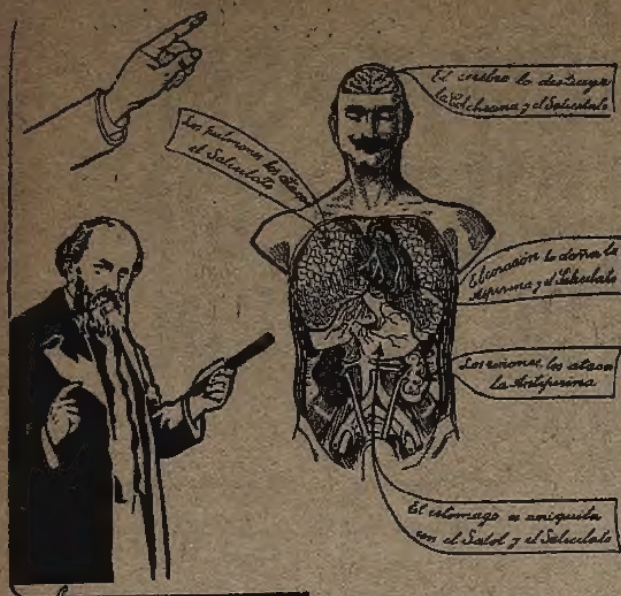 El cerebro lo destruye
la Colchicina y el Salicilato
Los pulmones los ataca
el Salicilato
El corazón lo daña la
Aspirina y el Salicilato
Los riñones los ataca
la Antipirina
El estomago se aniquila
con el Salol y el Salicilato